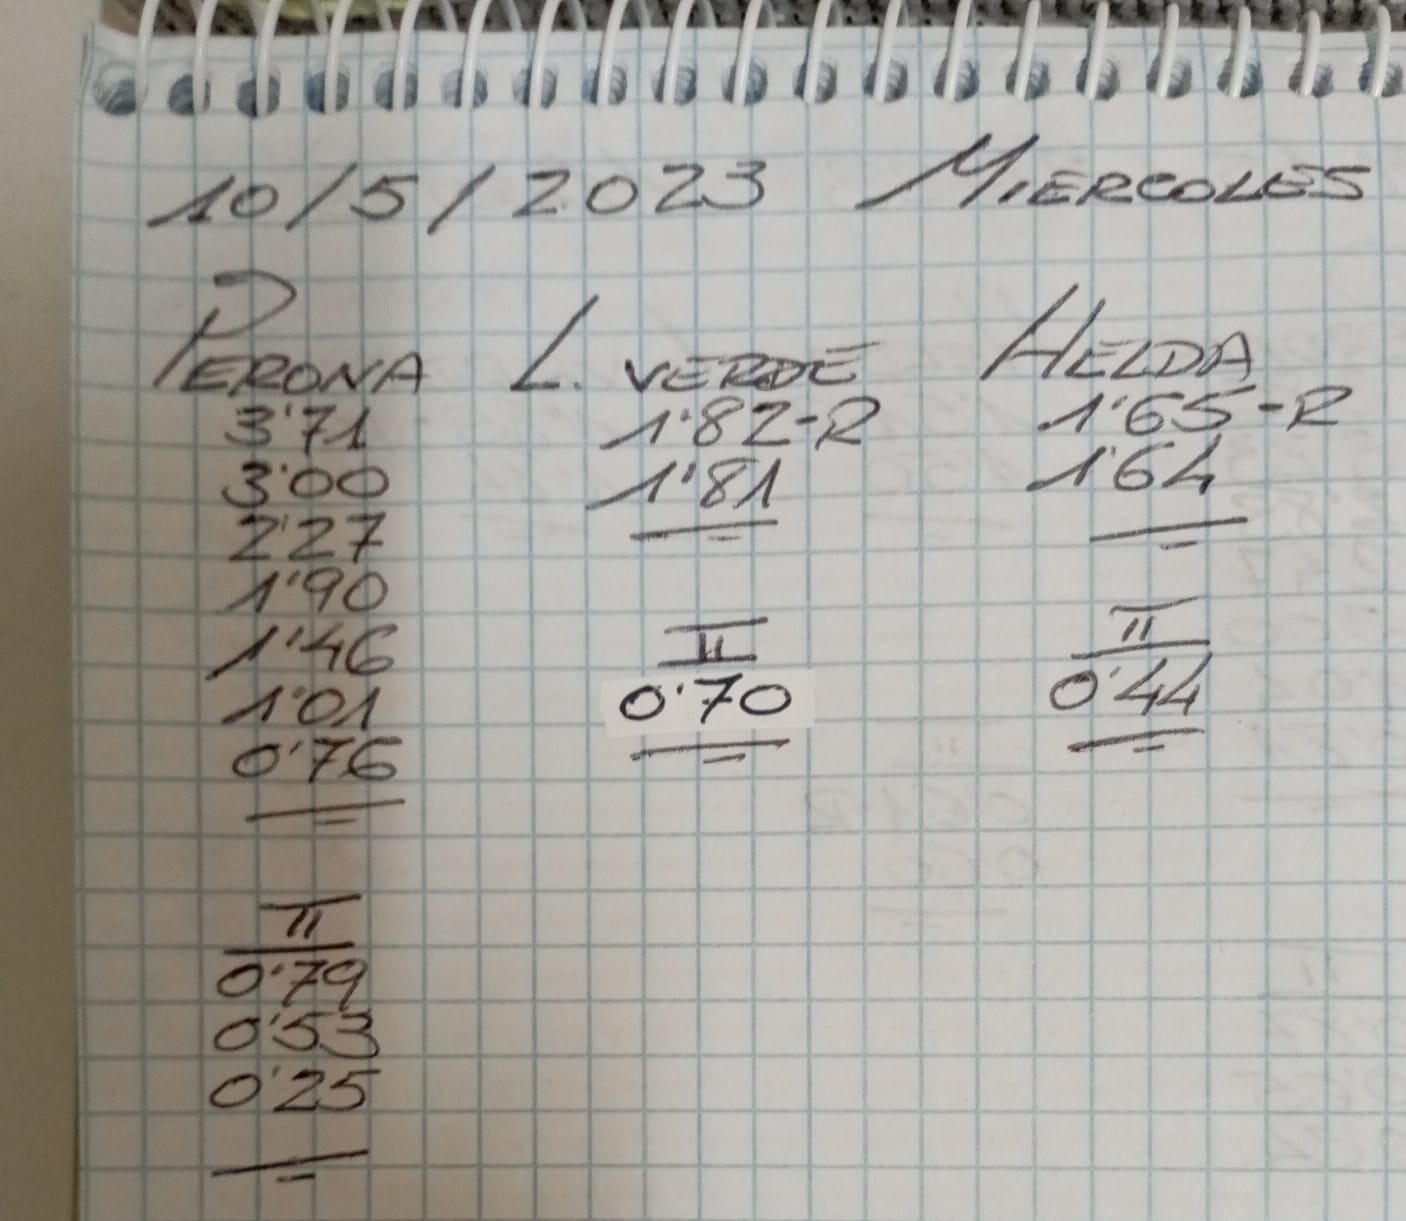 10/5/2023 MIERCOLES
PERONA L. VERDE HELDA
3'71 1'82-R 1'65-R
3'00 1'81 1'64
2'27
1'90
1'46 II II
1'01 0'70 0'44
0'76
II
0'79
0'53
0'25